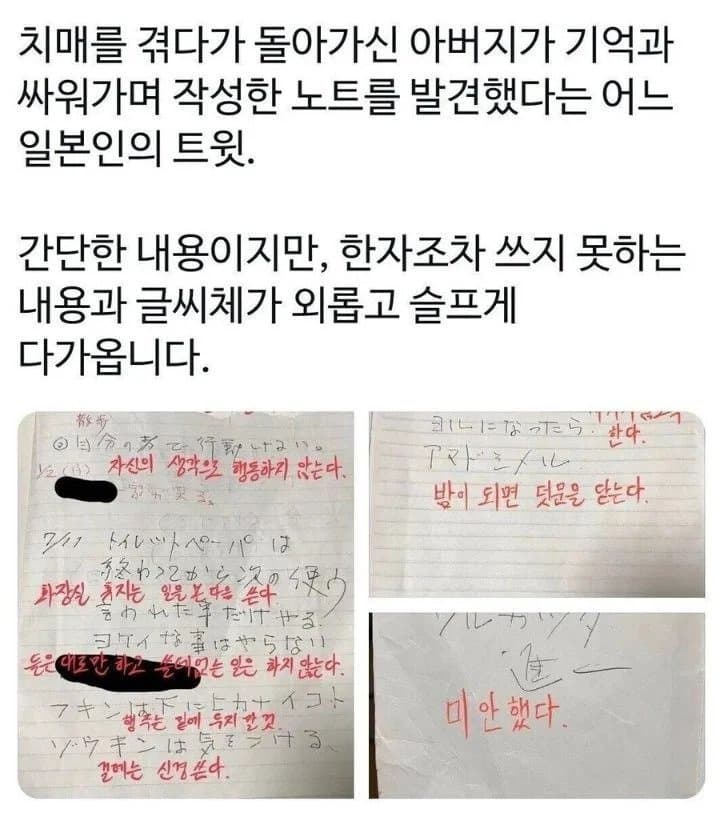 치매를 겪다가 돌아가신 아버지가 기억과
싸워가며 작성한 노트를 발견했다는 어느
일본인의 트윗.
간단한 내용이지만, 한자조차 쓰지 못하는
내용과 글씨체가 외롭고 슬프게
다가옵니다.
散歩
自分の考で行動しない。
자신의 생각으로 행동하지 않는다.
7/17 トイレットペーパは
終わってから次の使ウ
화장실 휴지는 일을 본 다음 쓴다
言われた事だけやる.
ヨケイな事はやらない
듣은 대로만 하고 쓸데없는 일은 하지 않는다.
フキンは下にヒカナイコト
행주는 밑에 두지 말 것.
ゾウキンは気をつける、
걸레는 신경 쓴다.
ヨルになったら.
한다.
アマドシメル
밤이 되면 덧문을 닫는다.
ワルカッタ
進一
미안했다.